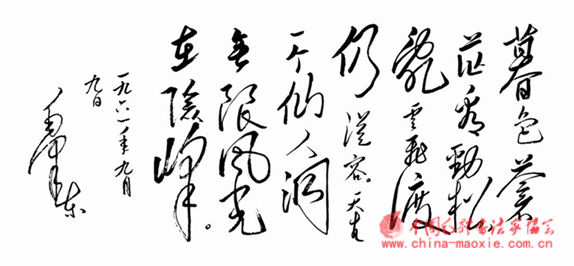 暮色蒼
茫看勁松
亂雲飛渡
仍從容。天生
一个仙人洞
無限風光
在險峰。
一九六一年九月
九日
毛澤东
中国毛体书法家协会
www.china-maoxie.com.cn